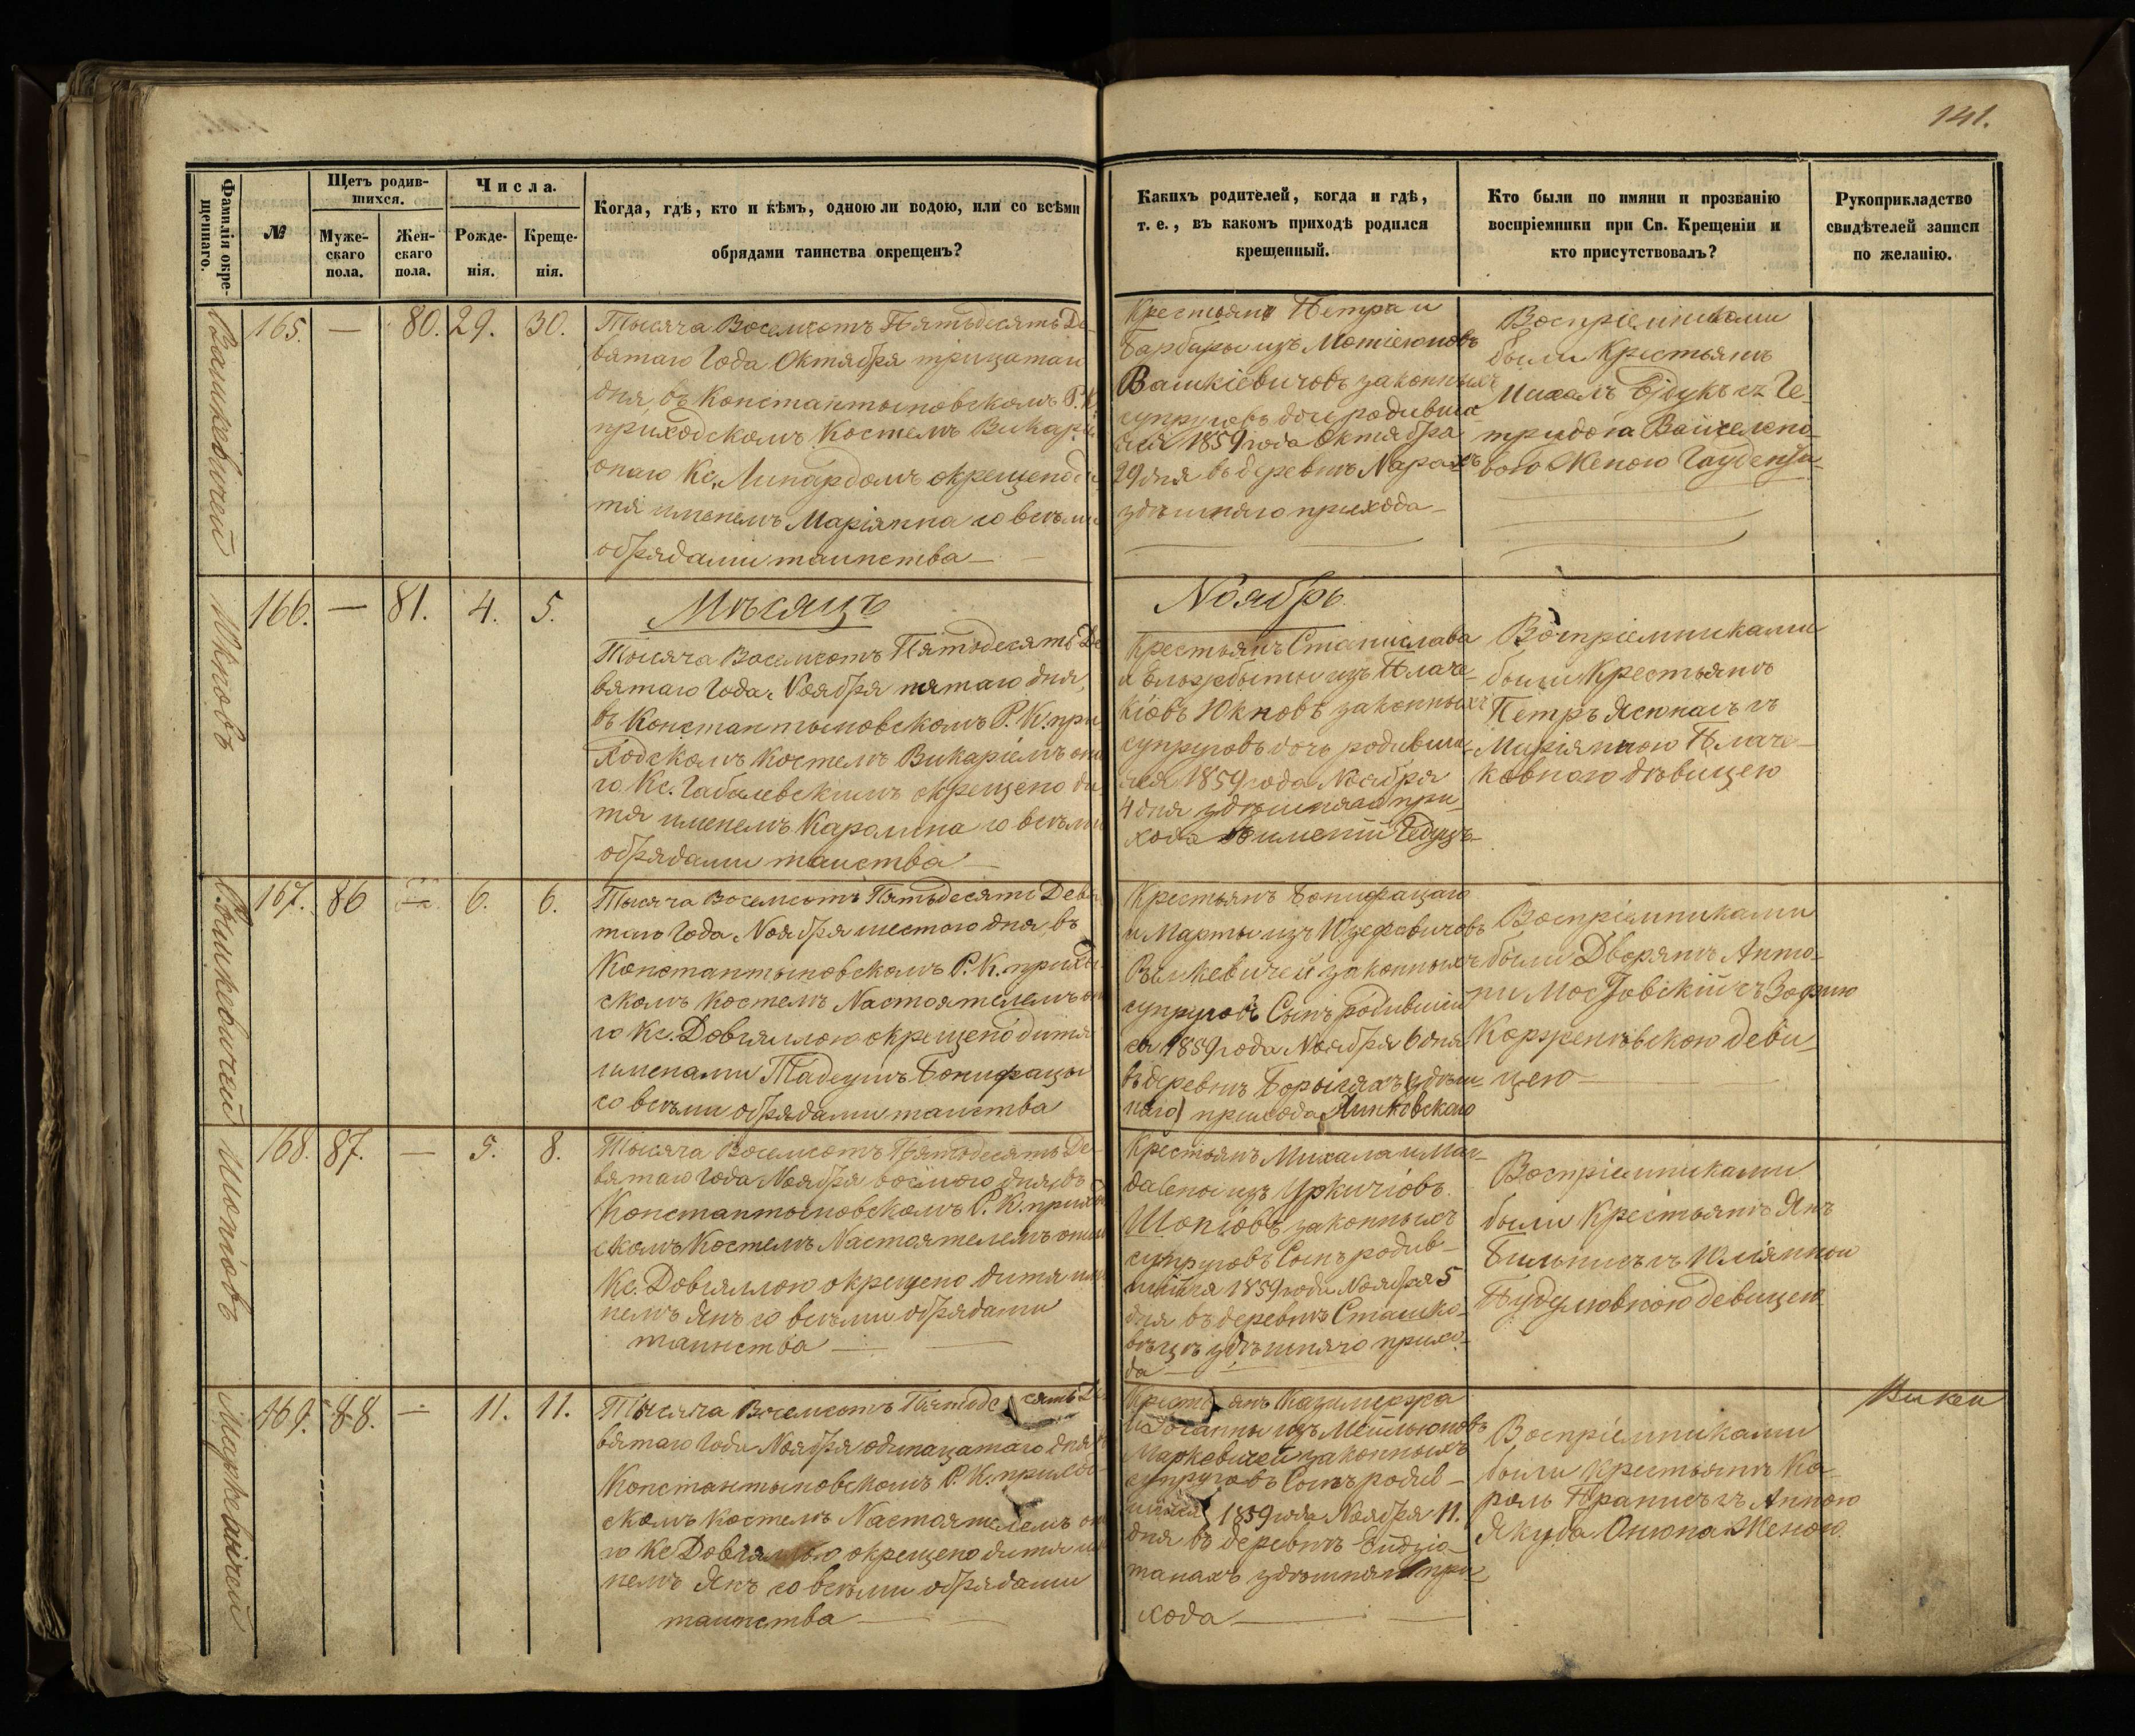 141.
Фамилія окре-
щеннаго.
№
Щетъ родив-
шихся.
Муже-
скаго
пола.
Жен-
скаго
пола.
Числа.
Рожде-
нія.
Креще-
нія.
Когда, гдѣ, кто и кѣмъ, одною ли водою, или со всѣми
обрядами таинства окрещенъ?
Какихъ родителей, когда и гдѣ,
т. е., въ какомъ приходѣ родился
крещенный.
Кто были по имяни и прозванію
воспріемники при Св. Крещеніи и
кто присутствовалъ?
Рукоприкладство
свидѣтелей записи
по желанію.
Вашкевичей
165.
—
80.
29.
30.
Тысяча Восемсотъ Пятьдесятъ Де-
вятаго Года Октября трицатаго
дня, въ Константыновскомъ Р. К.
приходскомъ Костелѣ
онаго Кс. Линардомъ окрещено ди
тя именемъ Маріянна со всѣми
обрядами таинства—
Крестьянъ Петра и
Барбары изъ
Вашкіевичовъ законныхъ
супруговъ дочь родивша
яся 1859 года Октября
29 дня въ деревнѣ
здѣшняго прихода—
Воспріемниками
были Крестьянъ
Михалъ съ Ге-
Женою
Юкновъ
166.
—
81.
4.
5.
Мѣсяцъ
Тысяча Восемсотъ Пятьдесятъ Де
вятаго Года Ноября пятаго дня,
въ Константыновскомъ Р. К. при
ходскомъ Костелѣ Викаріемъ она
го Кс. Габалевскимъ окрещено ди
тя именемъ Каролина со всѣми
обрядами таинства—
Ноябрь.
Крестьянъ Станислава
и Ельжбѣты изъ Плаче-
кіовъ Юкновъ законныхъ
супруговъ дочь родивша-
яся 1859 года Ноября
4 дня здѣшняго при-
хода
Воспріемниками
были Крестьянъ
Петръ съ
Маріянною Плаче-
ковною дѣвицею
Вашкевичей
167.
86
—
6.
6.
Тысяча Восемсотъ Пятьдесятъ Девя
таго Года Ноября шестого дня, въ
Константыновскомъ Р. К. приход
скомъ Костелѣ Настоятелемъ она
го Кс. Довгялло окрещено дитя
именами Тадеушъ Бонифацы
со всѣми обрядами таинства
Крестьянъ Бонифацаго
и Марты изъ Юзефовичовъ
законныхъ
супруговъ Сынъ родившій
ся 1859 года Ноября 6 дня
въ деревнѣ здѣш
няго прихода
Воспріемниками
были Дворянъ Анто-
ни съ Зофiю
деви-
цею—
Шопіовъ
168.
87.
—
5.
8.
Тысяча Восемсотъ Пятьдесятъ Де-
вятаго Года Ноября восмого дня, въ
Константыновскомъ Р. К. приход
скомъ Костелѣ Настоятелемъ она
Кс. Довгялло окрещено дитя име
немъ Янъ со всѣми обрядами
таинства—
Крестьянъ Михала и Маг-
далены изъ
Шопіовъ законныхъ
супруговъ Сынъ родив-
шійся 1859 года Ноября 5
дня въ деревнѣ Сташко-
здѣшняго прихо-
да
Воспріемниками
были Крестьянъ Янъ
съ Юліянною
девицею
Маркевичей
169.
88.
—
11.
11.
Тысяча Восемсотъ Пятьдесятъ Де
вятаго Года Ноября одинацатаго дня
Константыновскомъ Р. К. приход-
скомъ Костелѣ Настоятелемъ она
го Кс Довгялло окрещено дитя име
немъ Янъ со всѣми обрядами
таинства—
Крестьянъ Казимержа
и изъ
Маркевичей законныхъ
супруговъ Сынъ родив-
шійся 1859 года Ноября 11.
дня въ деревнѣ
здѣшняго при-
хода—
Воспріемниками
были Крестьянъ Ка-
роль съ Анною
Якуба Женою.